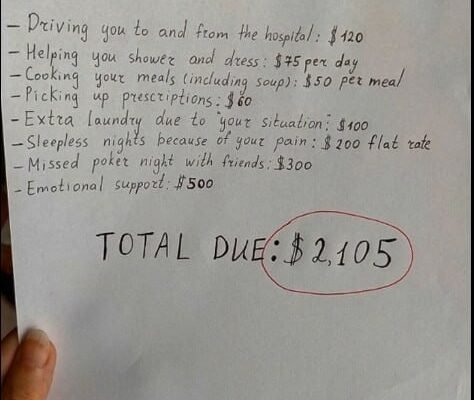 - Driving you to and from the hospital: $120
- Helping you shower and dress: $75 per day
- Cooking your meals (including soup): $50 per meal
- Picking up prescriptions: $60
- Extra laundry due to "your situation: $100
- Sleepless nights because of your pain: $200 flat rate
- Missed poker night with friends: $300
- Emotional support: $500
TOTAL DUE: $2,105